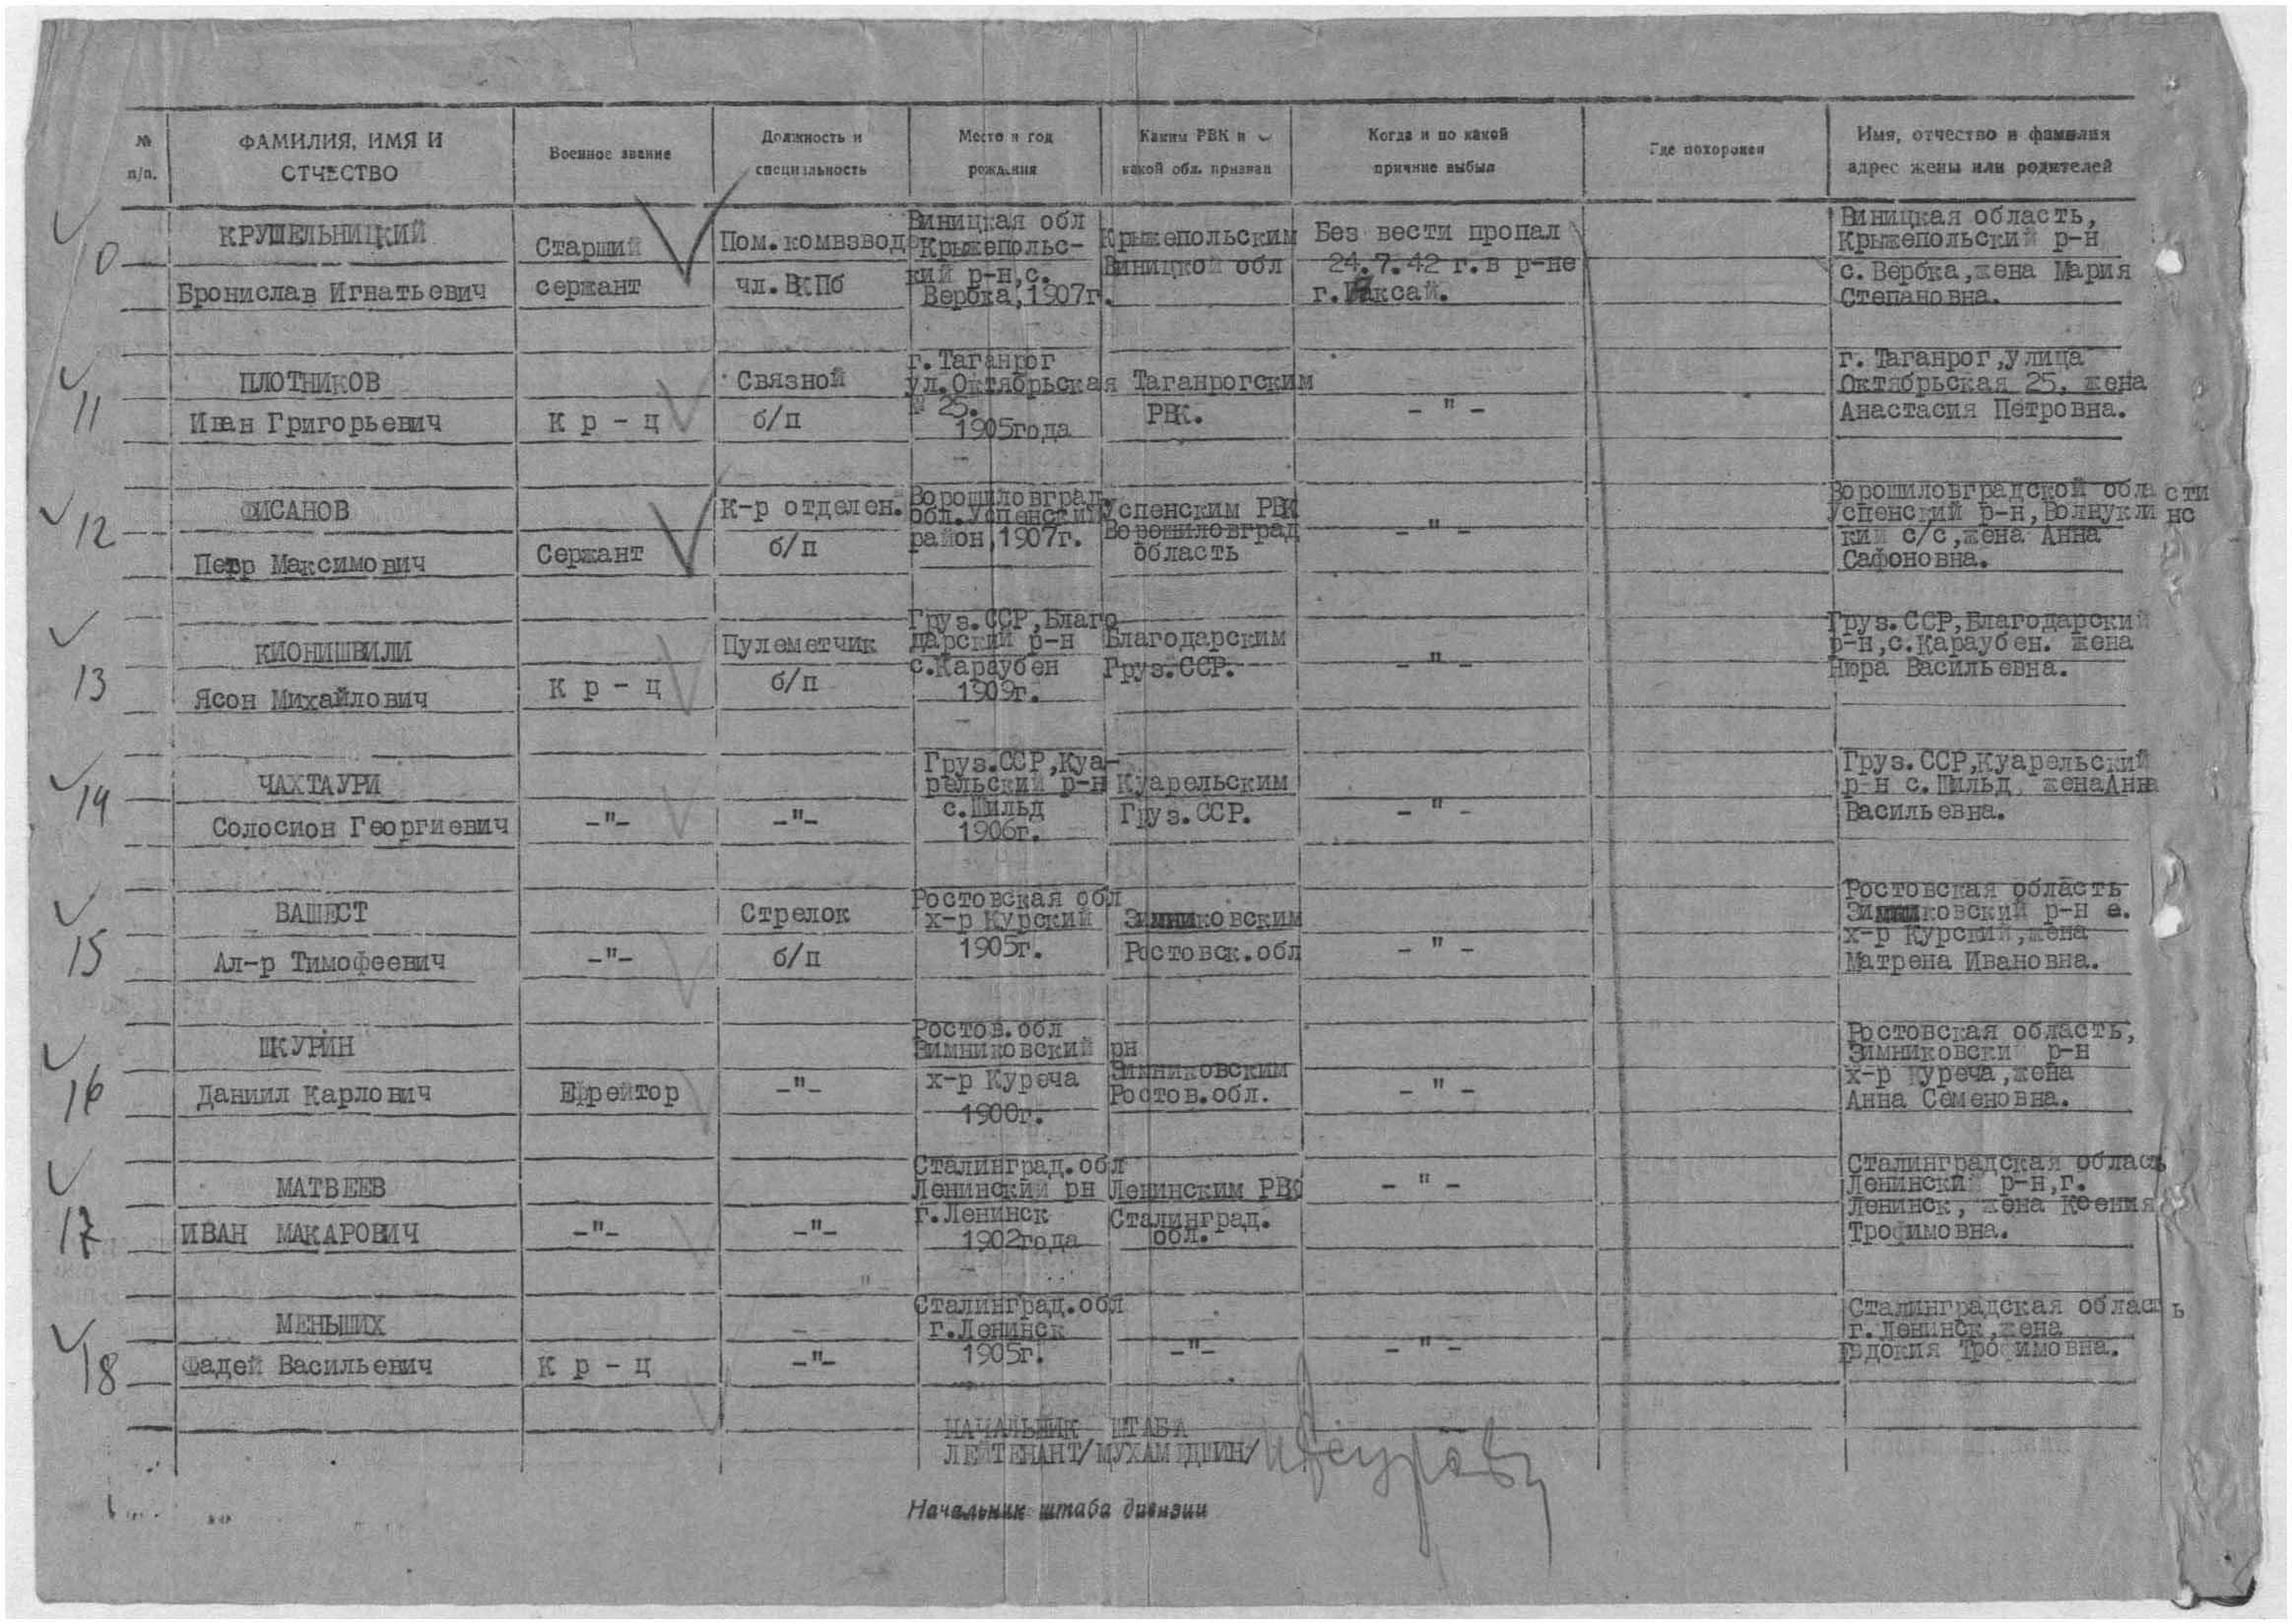 № п/п.
ФАМИЛИЯ, ИМЯ И ОТЧЕСТВО
Военное звание
Должность и специальность
Место и год рождения
Каким РВК и какой обл. призван
Когда и по какой причине выбыл
Где похоронен
Имя, отчество и фамилия адрес жены или родителей
10
КРУШЕЛЬНИЦКИЙ
Бронислав Игнатьевич
Старший
сержант
Пом.комвзвод
чл.ВКПб
Виницкая обл
Крыжепольс-
кий р-н,с.
Вербка,1907г.
Крыжепольским
Виницкой обл
Без вести пропал
24.7.42 г.в р-не
г.Аксай.
Виницкая область,
Крыжепольский р-н
с.Вербка,жена Мария
Степановна.
11
ПЛОТНИКОВ
Иван Григорьевич
К р - ц
Связной
б/п
г.Таганрог
ул.Октябрьская
№ 25.
1905года
Таганрогским
РВК.
- " -
г.Таганрог,улица
Октябрьская 25, жена
Анастасия Петровна.
12
ФИСАНОВ
Петр Максимович
Сержант
К-р отделен.
б/п
Ворошиловград
обл.Успенский
район,1907г.
Успенским РВК
Ворошиловград
область
- " -
Ворошиловградской области
Успенский р-н,Волнуклинс
кий с/с,жена Анна
Сафоновна.
13
КИОНИШВИЛИ
Ясон Михайлович
К р - ц
Пулеметчик
б/п
Груз.ССР,Благо
дарский р-н
с.Караубен
1909г.
Благодарским
Груз.ССР.
- " -
Груз.ССР,Благодарский
р-н,с.Караубен. жена
Нюра Васильевна.
14
ЧАХТАУРИ
Солосион Георгиевич
-"-
-"-
Груз.ССР,Куа-
рельский р-н
с.Шильд
1906г.
Куарельским
Груз.ССР.
- " -
Груз.ССР,Куарельский
р-н с.Шильд, женаАнна
Васильевна.
15
ВАШЕСТ
Ал-р Тимофеевич
-"-
Стрелок
б/п
Ростовская обл
х-р Курский
1905г.
Зимниковским
Ростовск.обл
- " -
Ростовская область
Зимниковский р-н с.
х-р Курский,жена
Матрена Ивановна.
16
ШКУРИН
Даниил Карлович
Ефрейтор
-"-
Ростов.обл
Зимниковский рн
х-р Куреча
1900г.
Зимниковским
Ростов.обл.
- " -
Ростовская область,
Зимниковский р-н
х-р Куреча,жена
Анна Семеновна.
17
МАТВЕЕВ
ИВАН МАКАРОВИЧ
-"-
-"-
Сталинград.обл
Ленинский рн
г.Ленинск
1902года
Ленинским РВК
Сталинград.
обл.
- " -
Сталинградская область
Ленинский р-н,г.
Ленинск, жена Ксения
Трофимовна.
18
МЕНЬШИХ
Фадей Васильевич
К р - ц
-"-
Сталинград.обл
г.Ленинск
1905г.
-"-
- " -
Сталинградская область
г.Ленинск,жена
Евдокия Трофимовна.
НАЧАЛЬНИК ШТАБА
ЛЕЙТЕНАНТ/МУХАМЕДШИН/
Начальник штаба дивизии